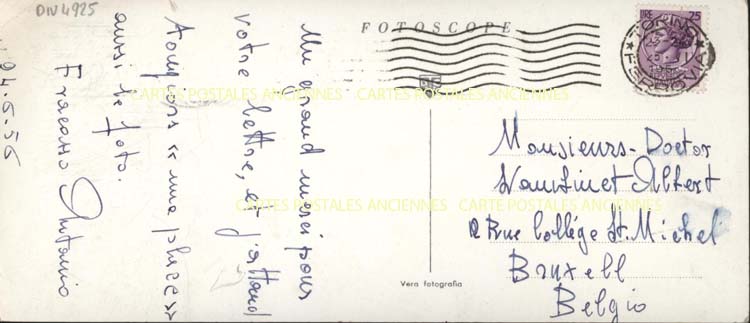 DIV4925
FOTOSCOPE
LIRE 25
TORINO
FERROVIA
CARTES POSTALES ANCIENNES CARTES POSTALES ANCIENNES
CARTES POSTALES ANCIENNES CARTES POSTALES ANCIENNES
Un grand merci pour
votre lettre, et j'attend
toujours «une places»
aussi le foto.
Antonio
24-5-56
Monsieurs-Doctor
Albert
2 Rue Collége St. Michel
Bruxell
Belgio
Vera fotografia